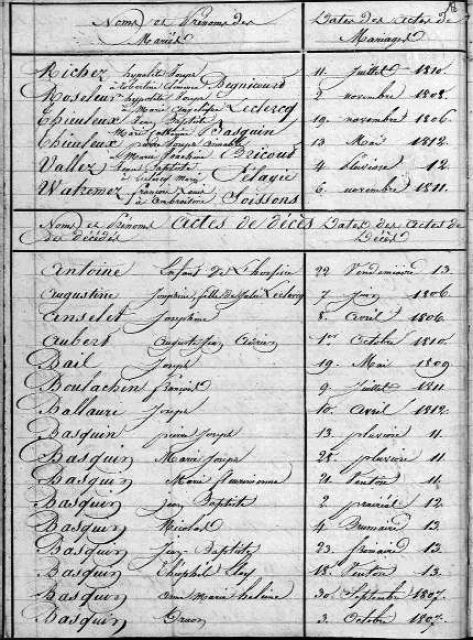 Noms et Prénoms des Mariés
Dates des actes de Mariages
Richez hypolite Joseph
à Robertine Clémence Degnicourt 11. Juillet 1810.
Roseleur hypolite Joseph
à Marie Leclercq 2 novembre 1808.
Thieuleux Jean Baptiste
Marie Catherine Basquin 19. novembre 1806.
Thieuleux pierre Joseph
à Marie Bricout 13 Mai 1812.
Vallez Louis Baptiste
à Marie 4 pluviose 12.
Watremez François Louis
à Ambroisine Soissons 6. novembre 1811.
Noms et Prénoms des décédés
actes de décès
Dates des actes de Décès
Antoine Enfant de L'hospice 22 Vendemiaire 13.
Augustine Josephine, fille de Julie Leclercq 7 Juin 1806.
Anselet Josephine 8. avril 1806.
Aubert Auguste Jean 1er Octobre 1810.
Bail Joseph 19. Mai 1809
Boulachin françois 9. Juillet 1811.
Ballaure Joseph 10. Avril 1812.
Basquin pierre Joseph 13. pluviose 11.
Basquin Marie Joseph 28. pluviose 11.
Basquin Marie 21. Ventose 11.
Basquin Jean Baptiste 2 prairial 12.
Basquin Nicolas 4 Brumaire 13.
Basquin Jean-Baptiste 23. frimaire 13.
Basquin Théophile Eloy 18. Ventose 13.
Basquin anne Marie heleine 30. Septembre 1807.
Basquin Druon 3. Octobre 1807.